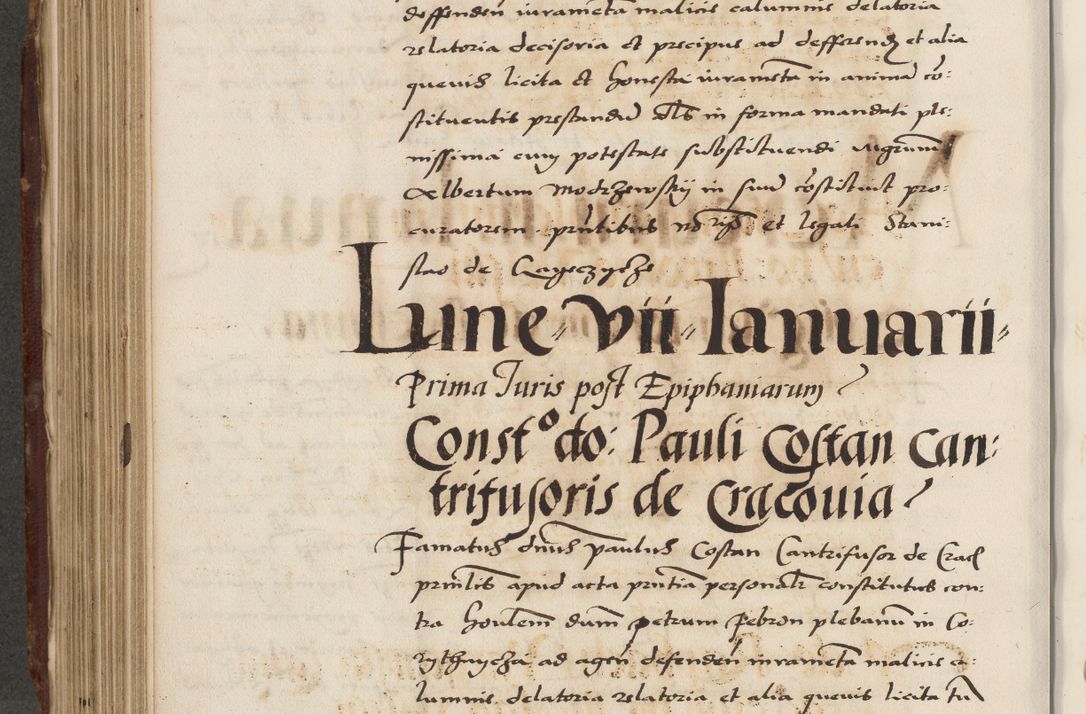 deffendeñ iurameta malicie calumnie delatoria
relatoria decisoria et precipue ad defferend et alia
quevis licita et honesta iurameta in anima cō:
stituentis prestandū Als in forma mandati ple:
nissima cum potestate substituendi
Albertum Modrzewsky in suū cōstituit pro:
curatorem prntibus et legali Stani:
slao de
Lune vii Ianuarii
Prima Iuris post Epiphaniarum
Const° do: Pauli Costan Can:
trifusoris de Cracovia
Famatus dnus paulus Costan Cantrifusor de Crac
prinlis apud acta prntia personalr constitutus con:
tra honlem dum petrum Pebron plebanū in Co:
ad agen defenden iurameta malicie ca:
lumnie delatoria relatoria et alia quevis licita tn